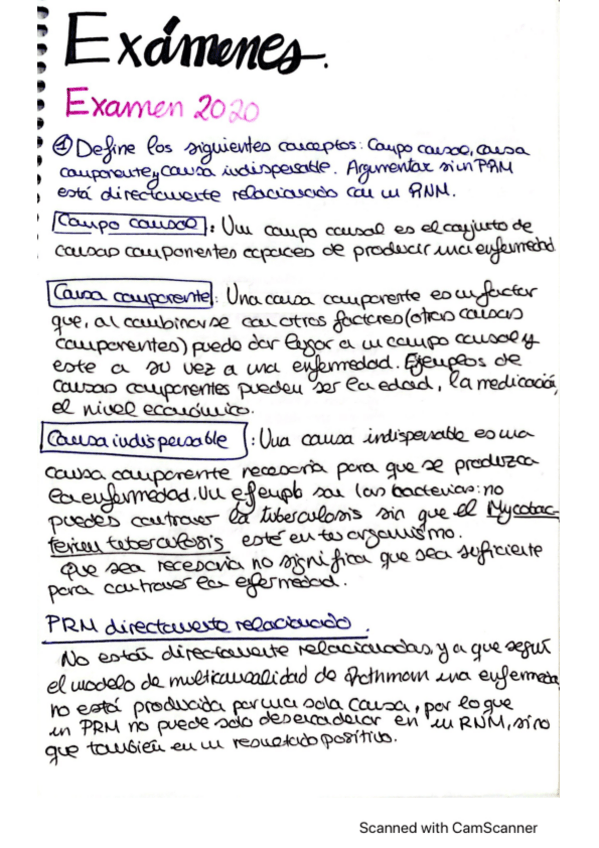 Exámenes.
Examen 2020
① Define los siguientes conceptos: Campo causal, causa
componente y causa indispensable. Argumentar si un PRM
está directamente relacionado con un RNM.
Campo causal: Un campo causal es el conjunto de
causas componentes capaces de producir una enfermedad
Causa componente: Una causa componente es un factor
que, al combinarse con otros factores (otras causas
componentes) puede dar lugar a un campo causal y
este a su vez a una enfermedad. Ejemplos de
causas componentes pueden ser la edad, la medicación,
el nivel económico.
Causa indispensable: Una causa indispensable es una
causa componente necesaria para que se produzca
la enfermedad. Un ejemplo son las bacterias: no
puedes contraer la tuberculosis sin que el Mycobac-
terium tuberculosis esté en tu organismo.
Que sea necesaria no significa que sea suficiente
para contraer la enfermedad.
PRM directamente relacionado.
No están directamente relacionadas, ya que según
el modelo de multicausalidad de Rothmam una enfermedad
no está producida por una sola causa, por lo que
un PRM no puede solo desencadenar en un RNM, sino
que también en un resultado positivo.
Scanned with CamScanner